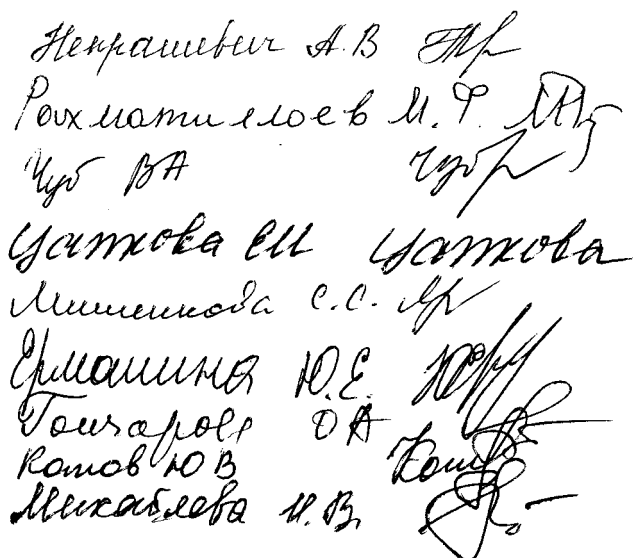 Некрашевич А.В
Рахматиллоев М.Ф.
Чуб ВА Чуб
Цаткова ЕИ Цаткова
Мишенкова С.С.
Ермашина Ю.Е.
Гончарова ОА
Котов ЮВ Кот
Михайлова И.В.